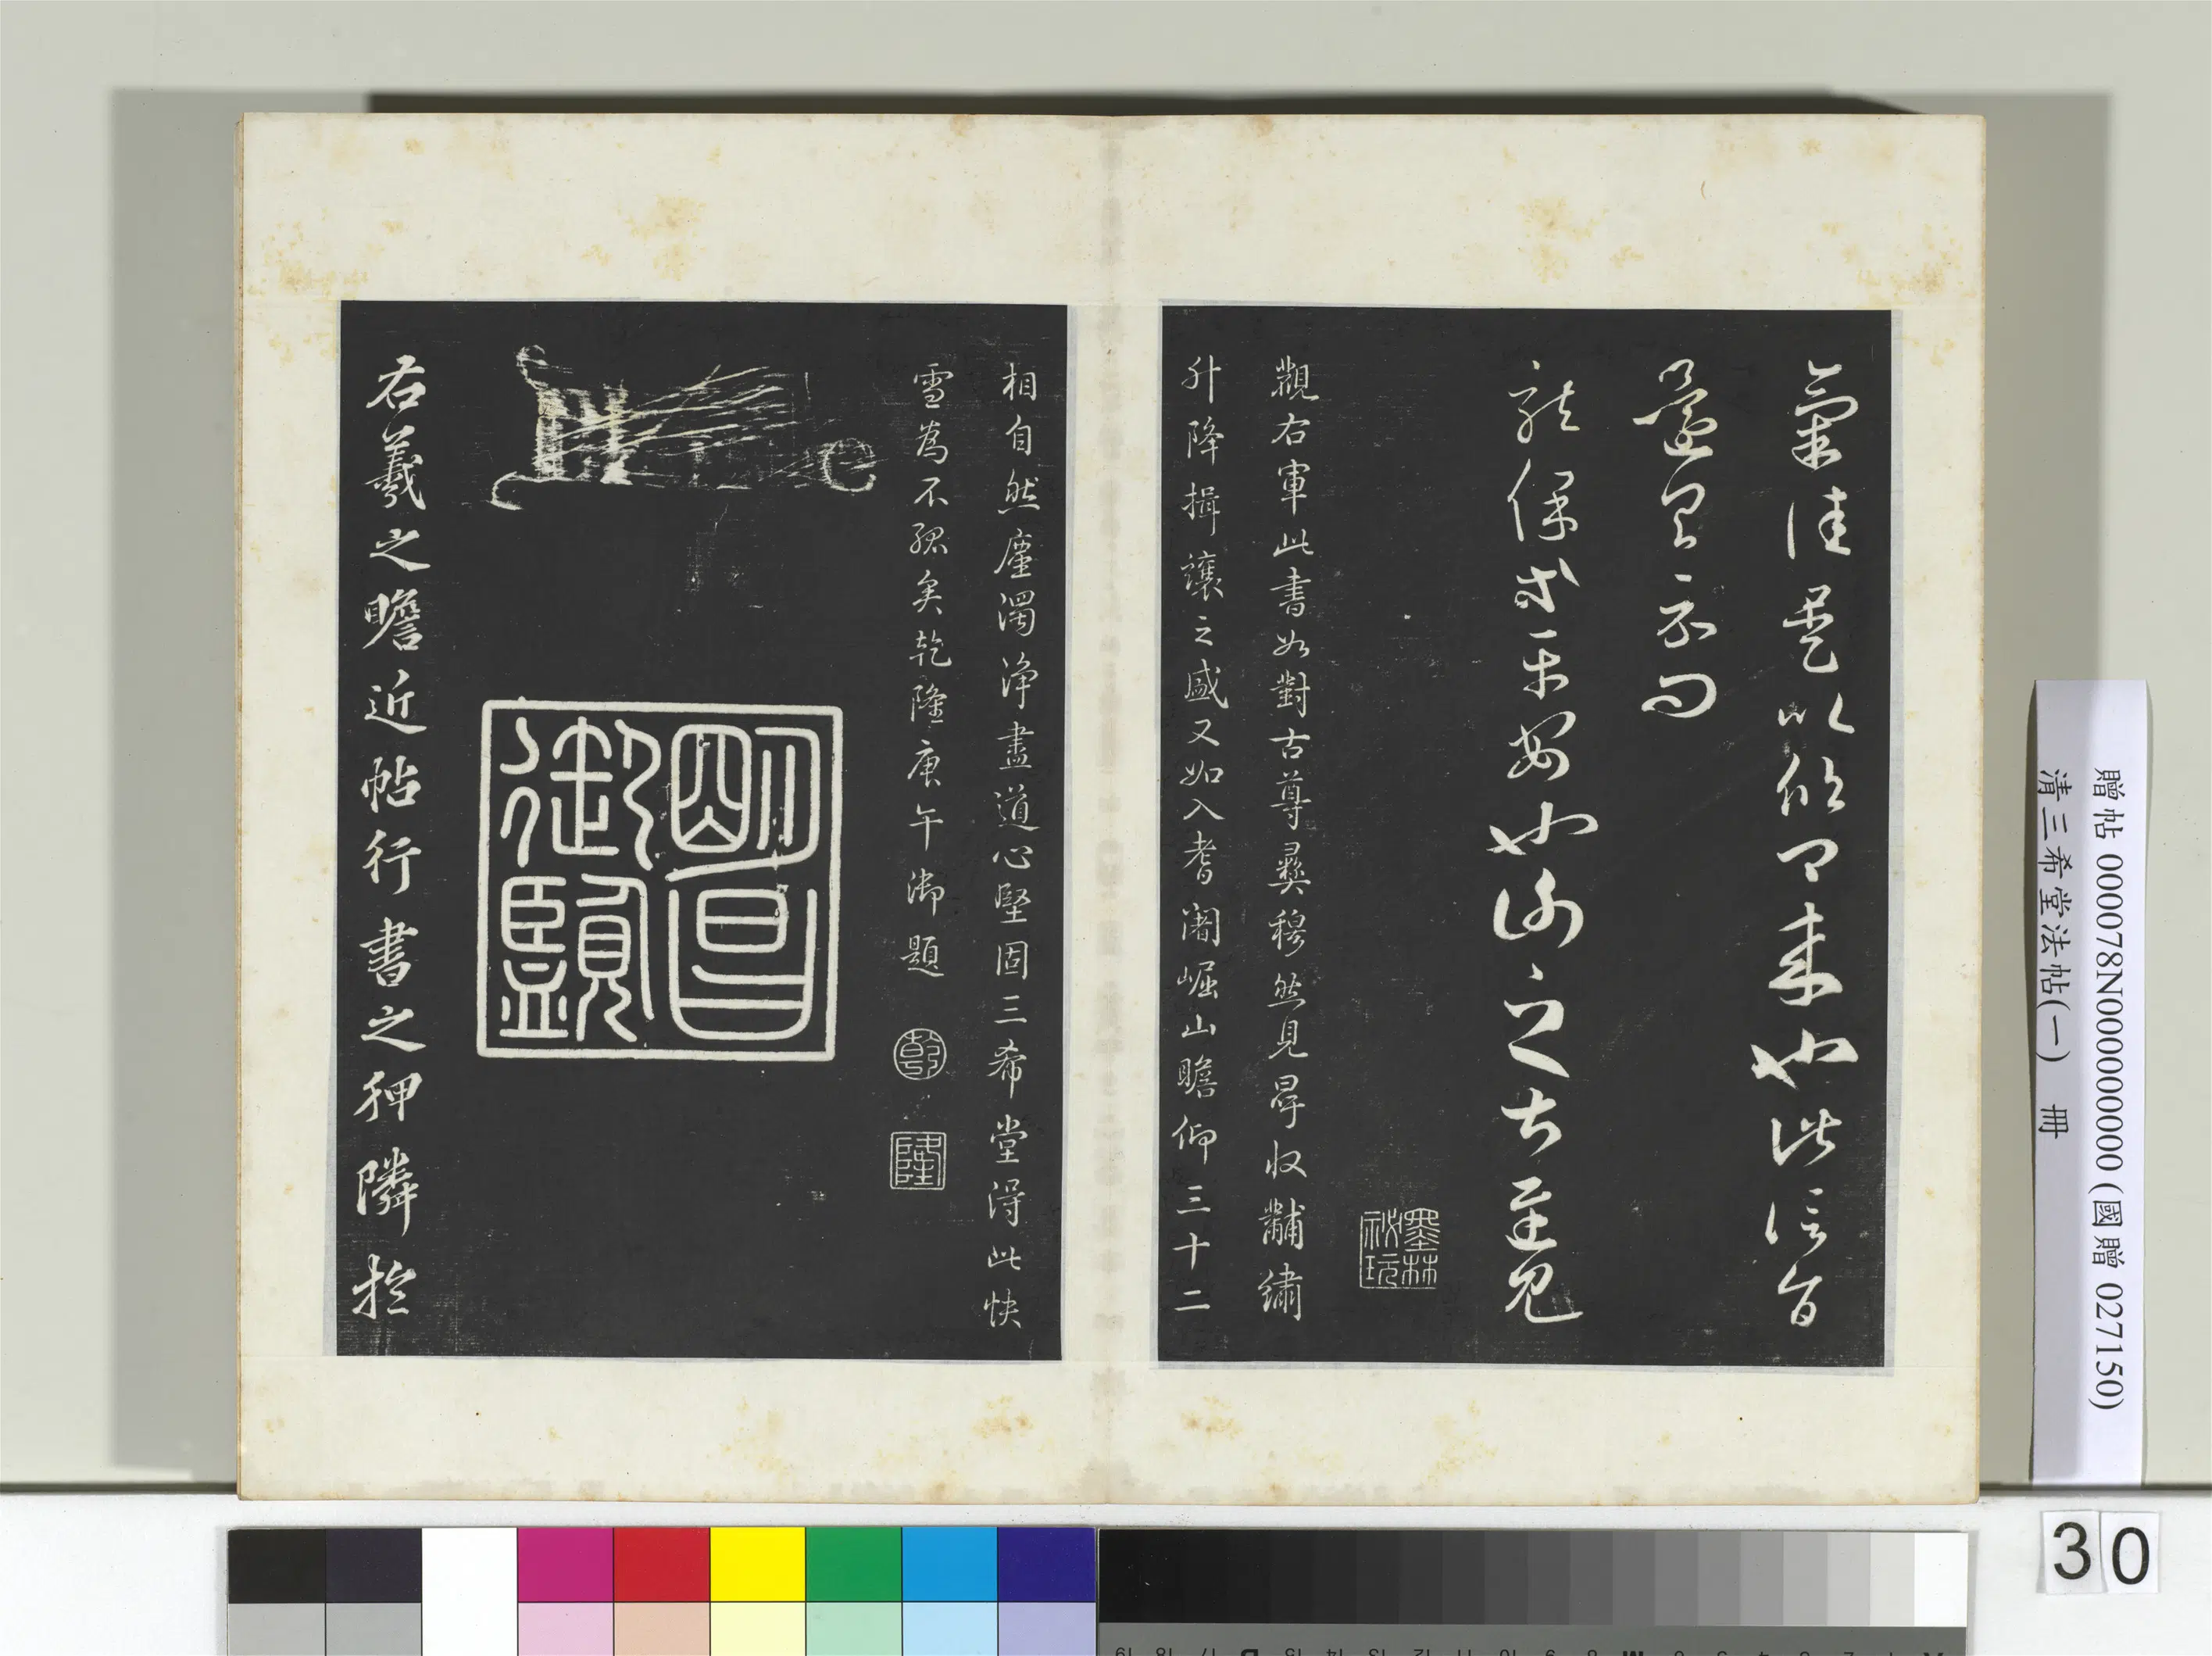 氣佳是以欣卿來也此信旨
還具示問
龍保等平安也謝之甚遲見
墨林秘玩
觀右軍此書如對古尊彝穆然見冔收黼繡
升降揖讓之盛又如入耆闍崛山瞻仰三十二
相自然塵濁淨盡道心堅固三希堂得此快
雪為不孤矣乾隆庚午御題
乾
隆
明昌
御覽
右羲之瞻近帖行書之狎隣於
贈帖 000078N000000000 (國贈 027150)
清三希堂法帖(一) 冊
30